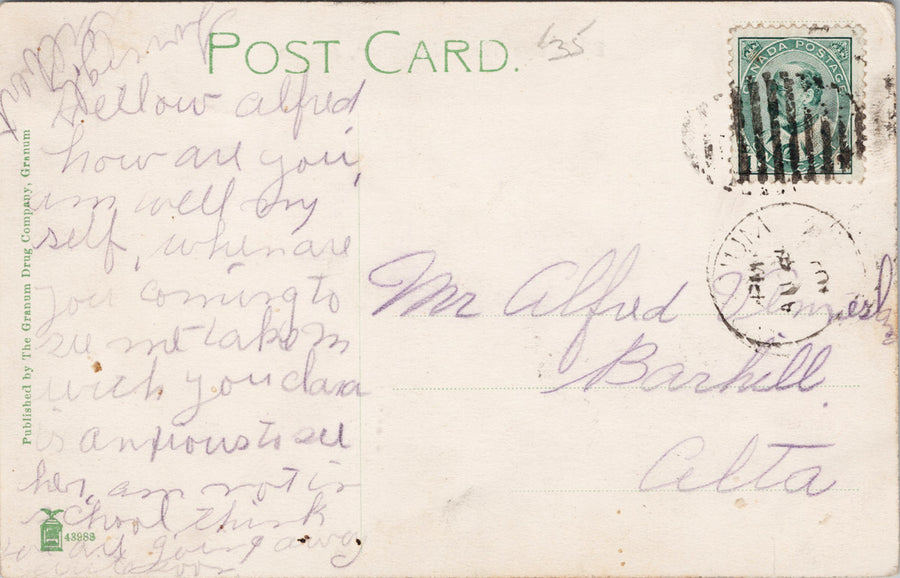 POST CARD.
135
CANADA POSTAGE
Published by The Granum Drug Company, Granum
43988
Hellow Alfred
how are you
am well my
self, when are
you coming to
see me take
with you clara
is anxious to see
her, am not in
school think
you are going away
soon
Mr Alfred
Barhill.
Alta
PM
AU